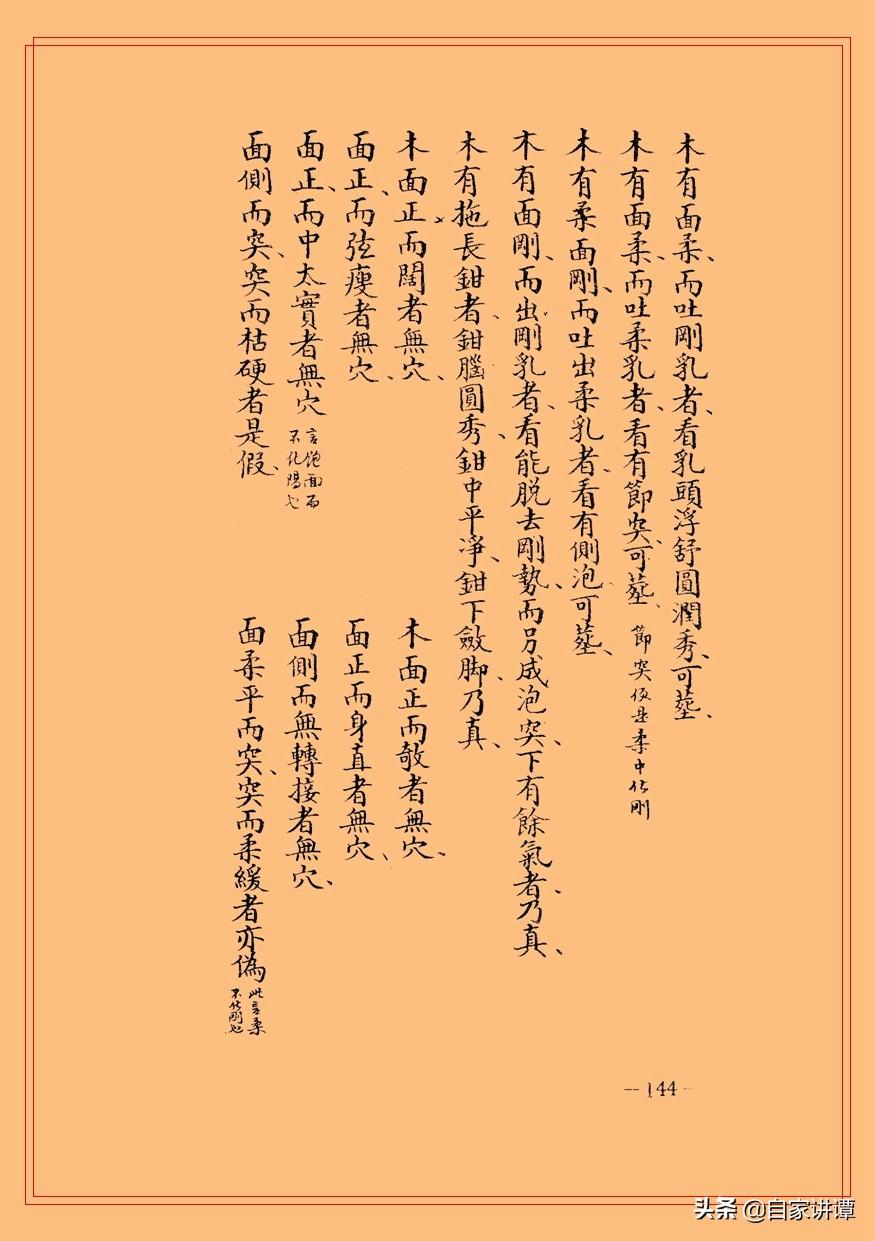 木有面柔、而吐剛乳者、看乳頭浮舒圓潤秀、可塟、
木有面柔、而吐柔乳者、看有節突、可塟、節突仮是柔中化剛
木有柔面剛、而吐出柔乳者、看有側泡可塟、
木有面剛、而出剛乳者、看能脱去剛勢、而另成泡突、下有餘氣者、乃真、
木有拖長鉗者、鉗腦圓秀、鉗中平淨、鉗下斂脚、乃真、
木面正而闊者無穴、
木面正而欹者無穴、
面正、而弦瘦者無穴、
面正而身直者無穴、
面正、而中太實者無穴 言飽面而不化陽也
面側而無轉接者無穴、
面側而突、突而枯硬者是假、
面柔平而突、突而柔緩者亦偽 此言柔不化剛也
-- 144 -
头条 @自家讲谭